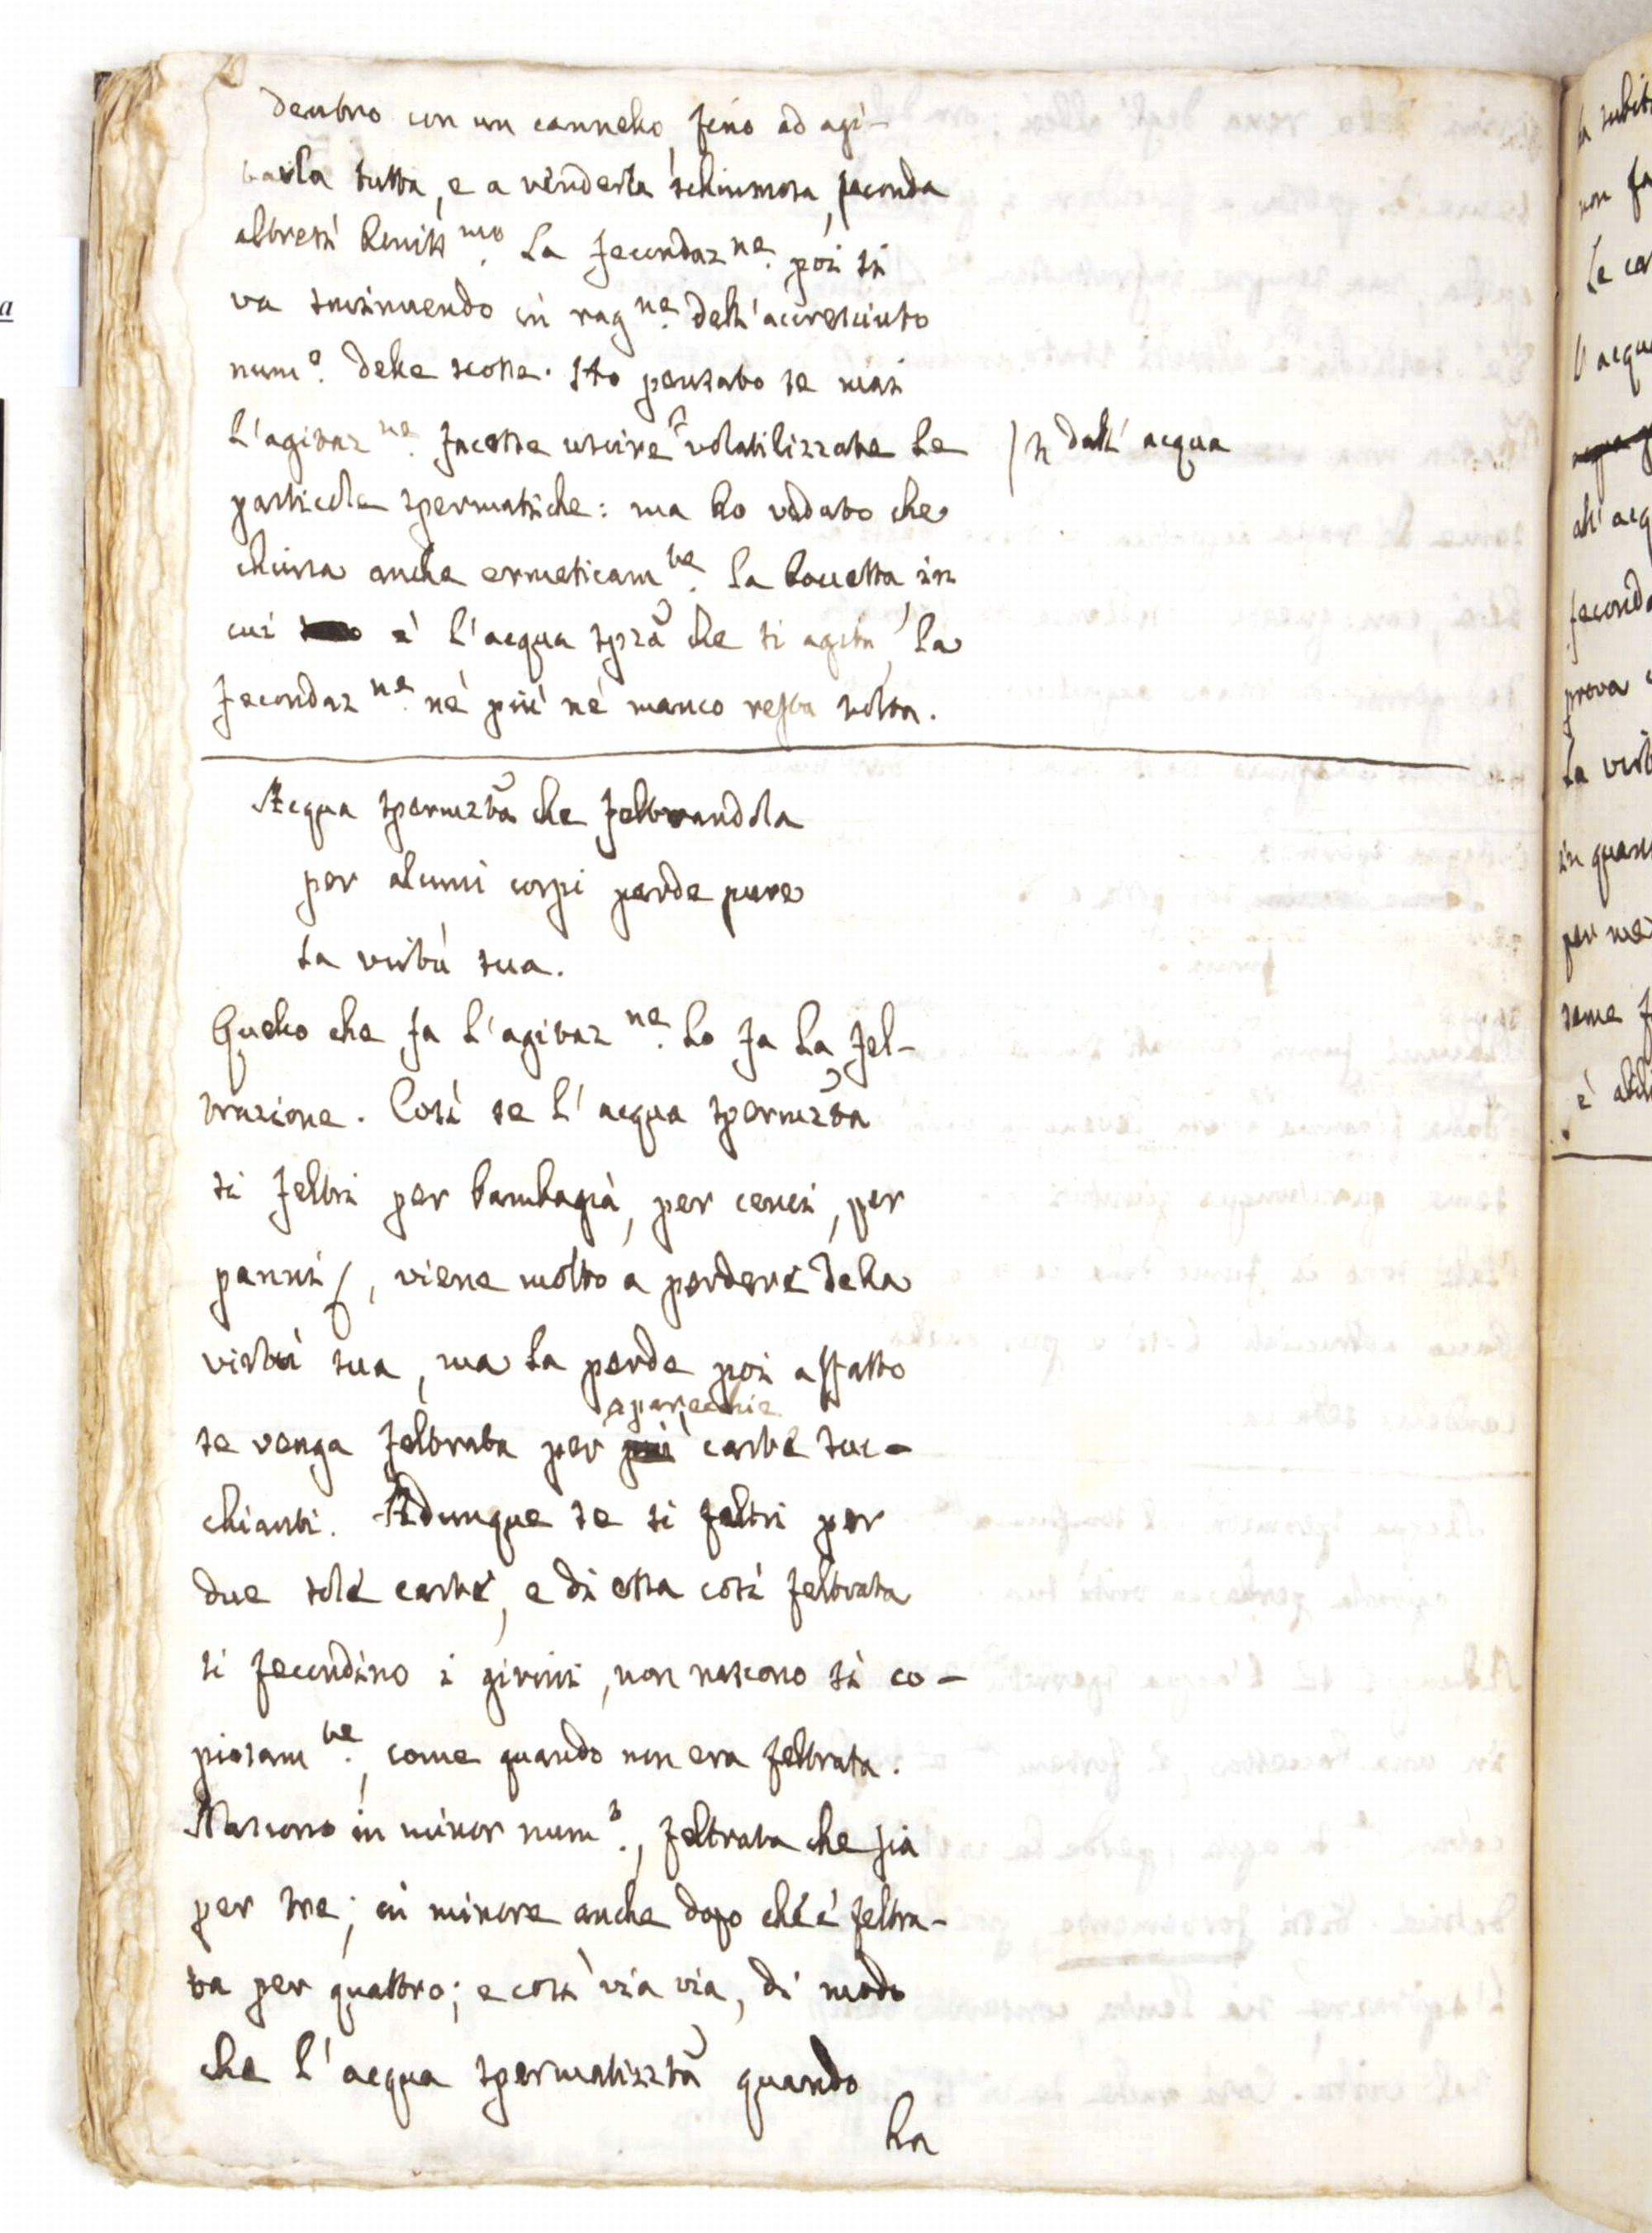 dentro con un cannello, fino ad agi-
tarla tutta, e a renderla schiumosa, feconda
altresì beniss.mo La fecondaz.ne poi si
va sminuendo in rag.ne dell'accresciuto
num.o delle scosse. Ho pensato se mai
l'agitaz.ne facesse uscire volatilizzate le
/ si dall'acqua
particole spermatiche: ma ho veduto che
chiusa anche ermeticam.te la boccetta in
cui è l'acqua sprã che si agita, la
fecondaz.ne nè più nè manco resta tolta.
Acqua spermztã che feltrandola
per alcuni corpi perde pure
la virtù sua.
Quello che fa l'agitaz.ne lo fa la fel-
trazione. Così se l'acqua spermztã
si feltri per bambagia, per cenci, per
panni, viene molto a perdere della
virtù sua, ma la perde poi affatto
se venga feltrata per parecchie carte suc-
chianti. Adunque se si feltri per
due sole carte, e di essa così feltrata
si fecondino i girini, non nascono sì co-
piosam.te, come quando non era feltrata.
Nascono in minor num.o, feltrata che sia
per tre; in minore anche dopo che è feltra-
ta per quattro; e così via via, di modo
che l'acqua spermatizztã quando
ha
a